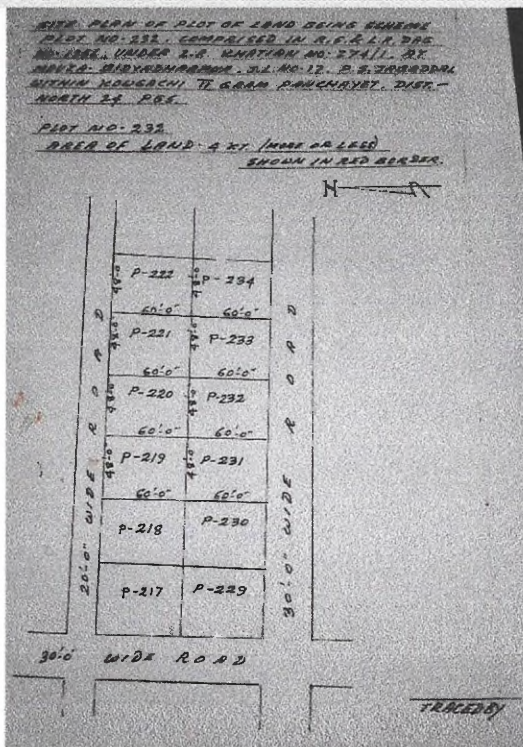 SITE PLAN OF PLOT OF LAND BEING SCHEME
PLOT NO-232, COMPRISED IN R.S & L.R. DAG
NO- UNDER L.R KHATIAN NO: 274/1 AT
MOUZA- BIDYADHARPUR. J.L. NO-12 P.S. JAGADDAL
WITHIN KOUGACHI II GRAM PANCHAYET. DIST-
NORTH 24 PGS.
PLOT NO-232
AREA OF LAND- 4 KT (MORE OR LESS)
SHOWN IN RED BORDER.
N
P-222 P-234
48'-0" 48'-0"
60'-0" 60'-0"
P-221 P-233
48'-0" 48'-0"
60'-0" 60'-0"
P-220 P-232
48'-0" 48'-0"
60'-0" 60'-0"
P-219 P-231
48'-0" 48'-0"
60'-0" 60'-0"
P-218 P-230
P-217 P-229
20'-0" WIDE ROAD
30'-0" WIDE ROAD
30'-0" WIDE ROAD
TRACED BY